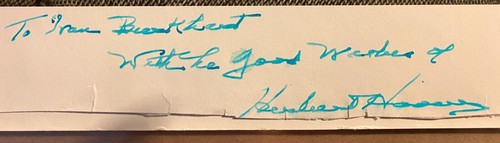 To Ivan
With the Good Wishes of
Herbert Hoover